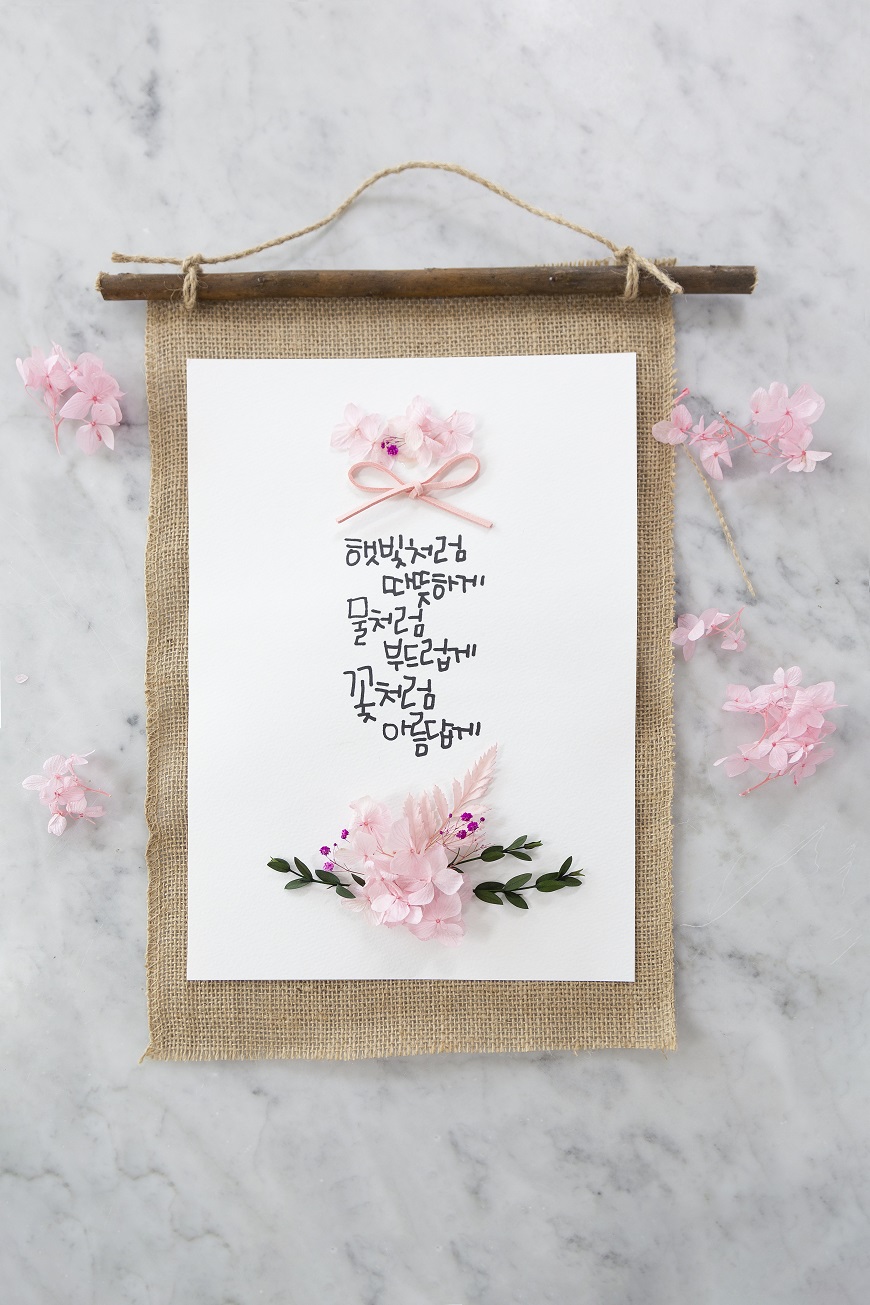 햇빛처럼
따뜻하게
물처럼
부드럽게
꽃처럼
아름답게